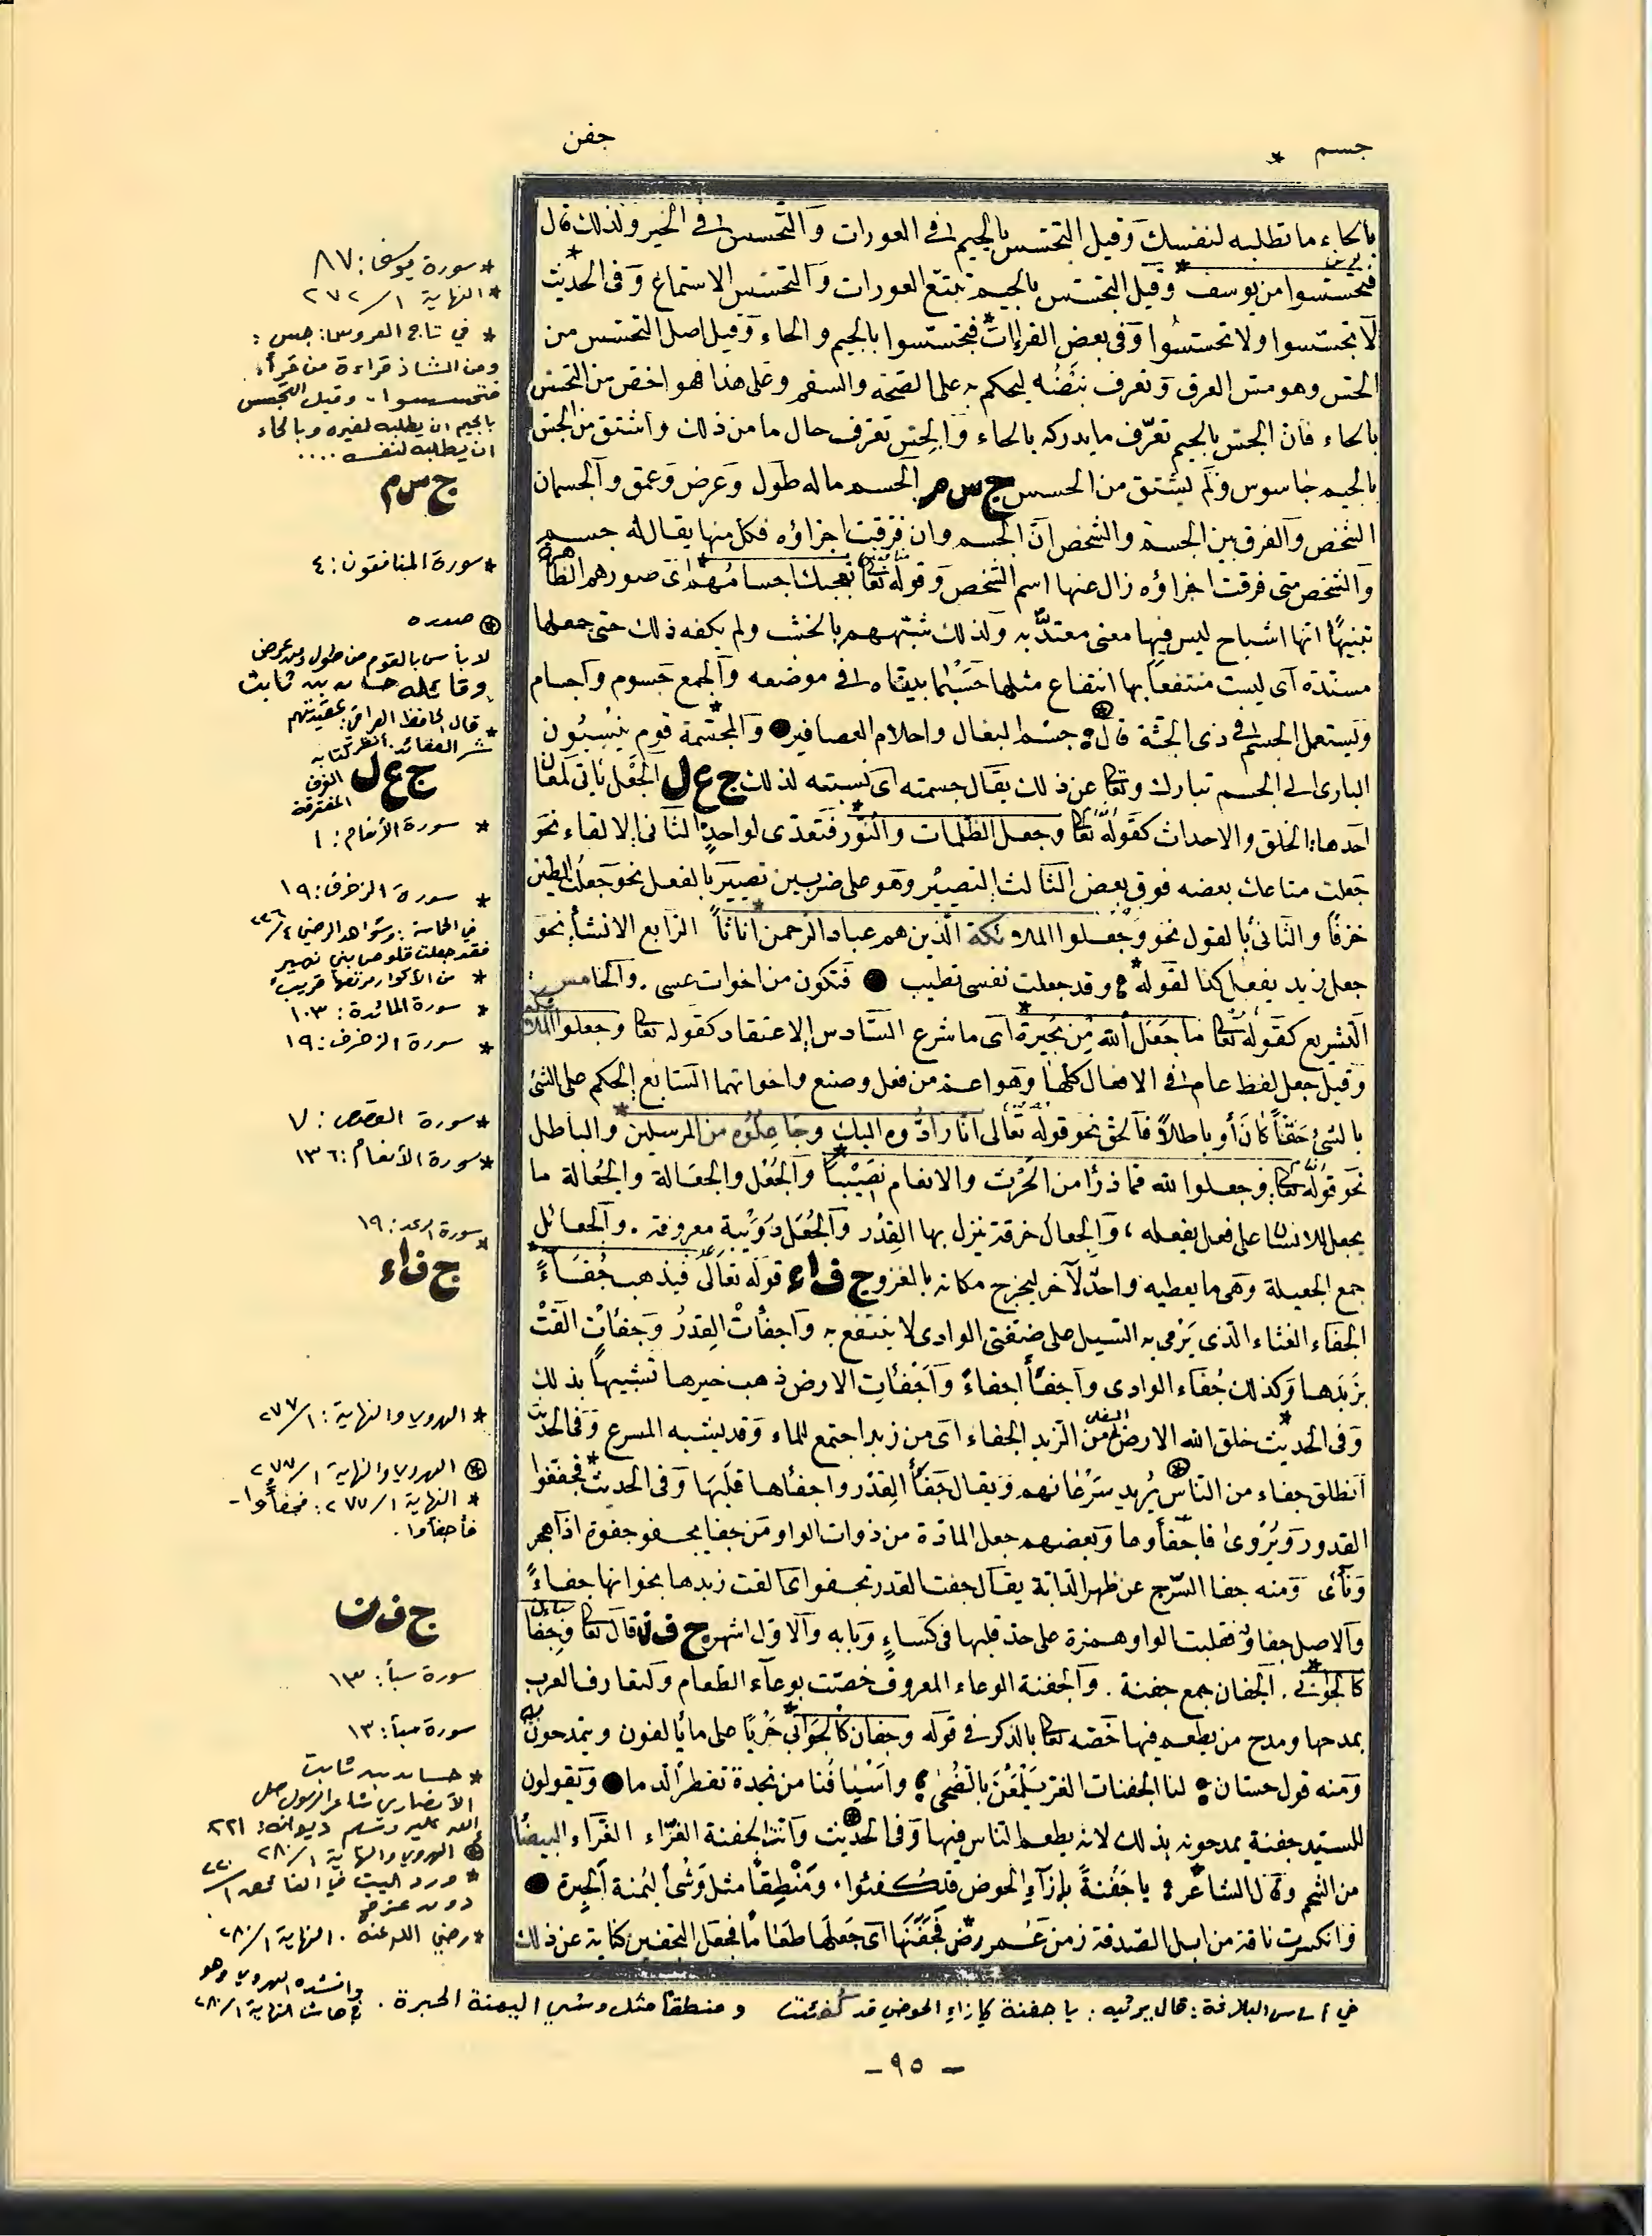 جسم *
جفن
بالحاء ما تطلبه لنفسك وقيل التجسس بالجيم في العورات والتحسس في الخير ولذلك قال
فتحسسوا من يوسف * وقيل التجسس بالجيم تتبع العورات والتحسس الاستماع وفي الحديث *
لا تجسسوا ولا تحسسوا وفي بعض القراءات * فتجسسوا بالجيم والحاء وقيل اصل التجسس من
الجس وهو مس العرق وتعرف نبضه ليحكم به على الصحة والسقم وعلى هذا هو اخص من التحسس
بالحاء فان الجس بالجيم تعرّف ما يدركه بالحاء والجس تعرف حال ما من ذلك واشتق من الجس
بالجيم جاسوس ولم يشتق من الحسس ج س م الجسم ما له طول وعرض وعمق والجسمان
الشخص والفرق بين الجسم والشخص انّ الجسم وان فرقت اجزاؤه فكل منها يقال له جسم
والشخص متى فرقت اجزاؤه زال عنها اسم الشخص وقوله تعالى تعجبك اجسامهم * اى صورهم الظاهرة
تنبيهًا انها اشباح ليس فيها معنى معتدّ به ولذلك شبّههم بالخشب ولم يكفه ذلك حتى جعلها
مسندة اى ليست منتفعا بها انتفاع مثلها حَسْبما بيناه في موضعه والجمع جسوم واجسام
ويستعمل الجسم في ذى الجثة قال جسم البغال واحلام العصافير والمجسّمة * قوم ينسبون
البارى الى الجسم تبارك وتعالى عن ذلك يقال جسمته اى نسبته لذلك ج ع ل الجَعْل يأتى لمعان
احدها: الخلق والاحداث كقوله تعالى وجعل الظلمات والنور * فتعدّى لواحدٍ الثانى الالقاء نحو
جعلت متاعك بعضه فوق بعض الثالث التصيير وهو على ضربين تصيير بالفعل نحو جعلت الطين
خزفًا والثانى بالقول نحو وجعلوا الملائكة الذين هم عباد الرحمن اناثاً * الرابع الانشاء نحو
جعل زيد يفعل كذا لقوله * وقد جعلت نفسى تطيب فتكون من اخوات عسى . والخامس :
التشريع كقوله تعالى ما جعل الله من بحيرة * اى ما شرع السادس الاعتقاد كقوله تعالى وجعلوا الملائكة
وقيل جعل لفظ عام في الافعال كلها وهو اعم من فعل وصنع واخواتهما السابع الحكم على الشئ
بالشئ حقًّا كان أو باطلاً فالحق نحو قوله تعالى انا رادّوه اليك وجاعلوه من المرسلين * والباطل
نحو قوله تعالى وجعلوا لله مما ذرأ من الحرث والانعام نصيبًا * والجُعْل والجعالة والجُعالة ما
يجعل للانسان على فعل يفعله ، والجعال خرقة ينزل بها القِدْر والجُعَل دُوَيْبة معروفة . والجعائل
جمع الجعيلة وهى ما يعطيه واحد لآخر ليخرج مكانه بالغزو ج ف ا ء قوله تعالى فيذهب جُفَاءً *
الجفاء الغثاء الذى يَرْمى به السيل على ضفتى الوادى لا ينتفع به واجفأتْ القِدرُ وجفأتْ القتْ
بزبدها وكذلك جُفاء الوادى واجفأ اجفاءً واجفأت الارض ذهب خيرها تشبيهًا بذلك
وفى الحديث * خلق الله الارض السفلى من الزبد الجفاء اى من زبد اجتمع للماء وقد يشبه المسرع وفى الحديث
انطلق جفاء من الناس يريد سَرْعانهم ويقال جَفَأ القِدْر واجفأها قلبها وفى الحديث * فجفؤا
القدور ويُرْوى فاجفأوها وبعضهم جعل المادة من ذوات الواو من جفا يجفو جفوة اذا هجر
ونأى ومنه جفا السّرج عن ظهر الدابة يقال جفت القدر تجفو اى القت زبدها بجوانبها جفاءً
والاصل جفاو فقلبت الواو همزة على حد قلبها فى كساءٍ وبابه والاول اشهر ج ف ن قال تعالى وجِفان
كالجواب * . الجفان جمع جفنة . والجفنة الوعاء المعروف خصّت بوعاء الطعام ولتعارف العرب
بمدحها ومدح من يطعم فيها خصّه تعالى بالذكر فى قوله وجفان كالجوابى * جَرْيًا على ما يألفون ويتمدحون به
ومنه قول حسان لنا الجفنات الغر يَلْمَعْنَ بالضحى * واسْيَافُنا من نجدة تقطر الدما ويقولون
للسيد جفنة يمدحونه بذلك لانه يطعم الناس فيها وفى الحديث وانت الجفنة الغرّاء الغرّاء البيضاء
من الشحم وقال الشاعر * يا جَفْنةً بإزآءِ الحوض قد كفئوا ومَنْطِقًا مثل وَشْى اليُمنة الحِبرة
وانكسرت ناقة من ابل الصدقة زمن عمر رضّ فجَفَنَها اى جَعَلَها طعامًا فجعل التجفين كناية عن ذلك
* سورة يوسف: ٨٧
* النهاية ١/ ٢٧٢
* في تاج العروس: جس :
ومن الشاذ قراءة من قرأ:
فتجسسوا - وقيل التجسس
بالجيم ان يطلبه لغيره وبالحاء
ان يطلبه لنفسه ....
ج س م
* سورة المنافقون: ٤
صدره
لا بأس بالقوم من طول ومن عرض
وقائله حسان بن ثابت
* قال الحافظ العراقي: عقيدتهم
شر العقائد. انظر كتابه
ج ع ل الفرق
المفترقة
* سورة الأنعام: ١
* سورة الزخرف: ١٩
في الحماسة: وشواهد الرضي ٤/
فقد جعلت قلوص بني سهيل
* من الأكوار مرتعها قريب
* سورة المائدة: ١٠٣
* سورة الزخرف: ١٩
* سورة القصص: ٧
* سورة الأنعام: ١٣٦
* سورة الرعد: ١٩
ج ف ا ء
* الهروي والنهاية: ١/ ٢٧٧
الهروي والنهاية ١/ ٢٧٧
* النهاية ١/ ٢٧٧: فجفأوا -
فأجفأوا .
ج ف ن
سورة سبأ: ١٣
سورة سبأ: ١٣
* حسان بن ثابت
الأنصاري شاعر الرسول صلى
الله عليه وسلم ديوانه: ٢٢١
الهروي والنهاية ١/ ٢٨٠
* ورد البيت في الفائق ١/ ٢٢٠
دون عزو
* رضي الله عنه . النهاية ١/ ٢٨٠
وانشده الهروي وهو
في أساس البلاغة: قال يرثيه: يا جفنة كإزاء الحوض قد كُفئت ومنطقا مثل وشي اليمنة الحبرة .
- ٩٥ -